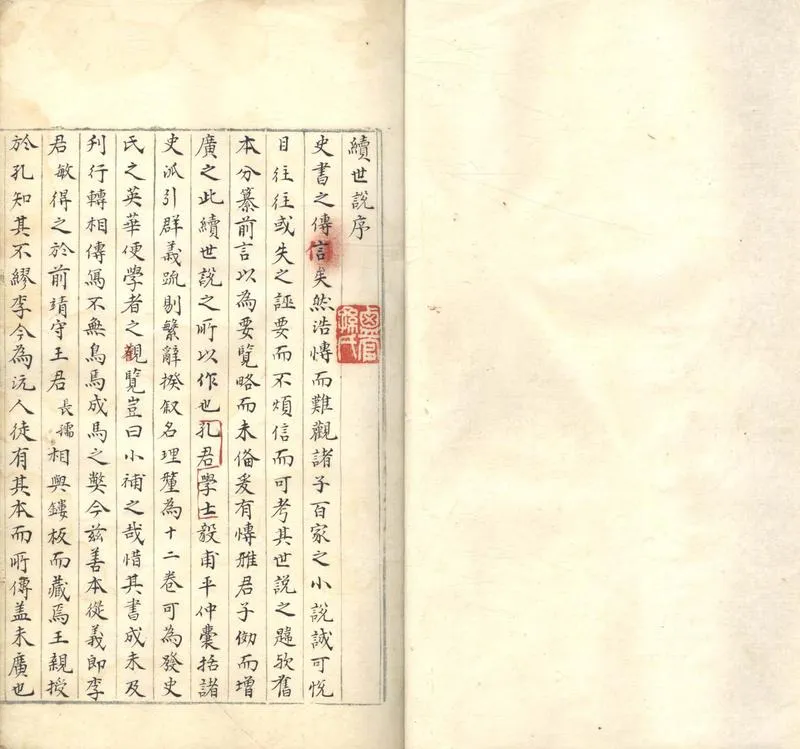 續世說序
史書之傳信矣然浩愽而難觀諸子百家之小說誠可悅
目往往或失之誣要而不煩信而可考其世說之題歟舊
本分纂前言以為要覽略而未俻爰有愽雅君子俲而增
廣之此續世說之所以作也孔君學士毅甫平仲囊括諸
史派引群義疏剔繁辭揆叙名理釐為十二卷可為發史
氏之英華便學者之觀覽豈曰小補之哉惜其書成未及
刋行轉相傳寫不無烏焉成馬之弊今兹善本從義郎李
君敏得之於前靖守王君長孺相與鏤板而藏焉王親授
於孔知其不繆李今為沅人徒有其本而所傳盖未廣也
鹽官
孫氏